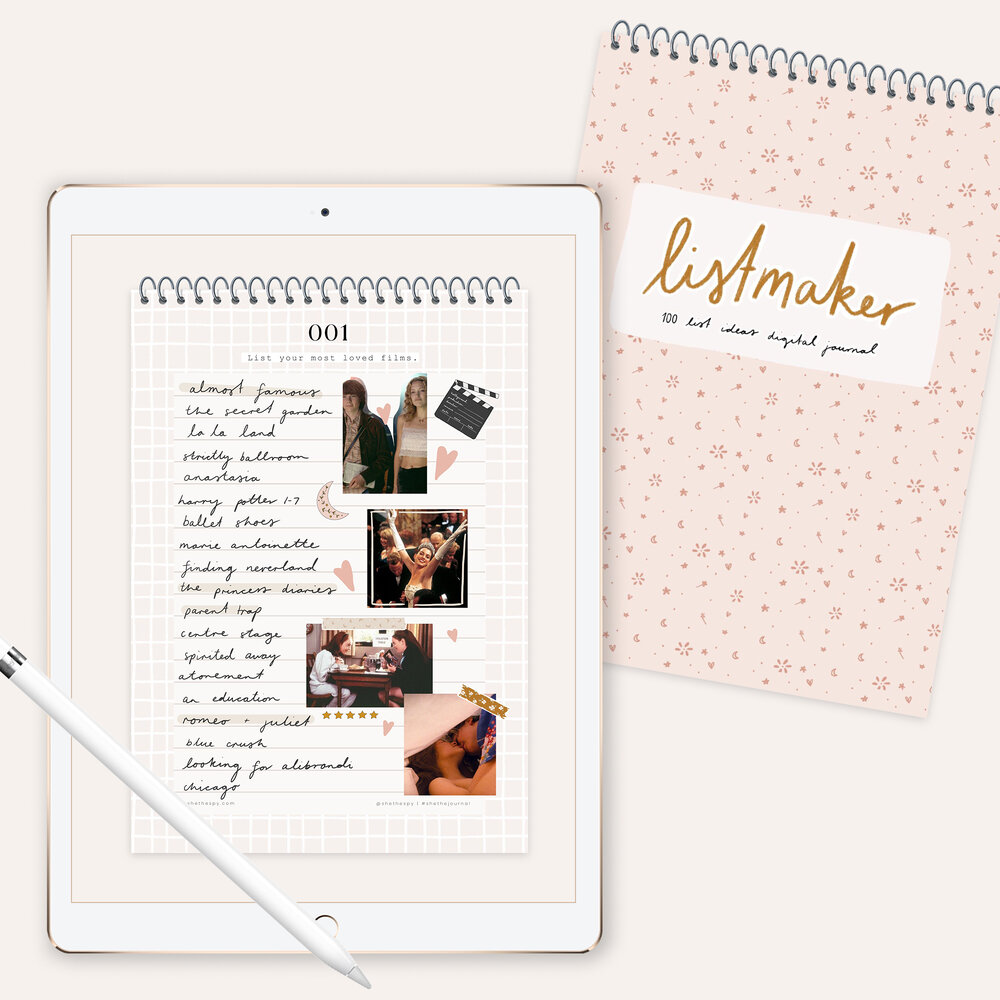 001
List your most loved films.
almost famous
the secret garden
la la land
strictly ballroom
anastasia
harry potter 1-7
ballet shoes
marie antoinette
finding neverland
the princess diaries
parent trap
centre stage
spirited away
atonement
an education
romeo + juliet
blue crush
looking for alibrandi
chicago
@shethespy | #shethejournal
listmaker
100 list ideas digital journal